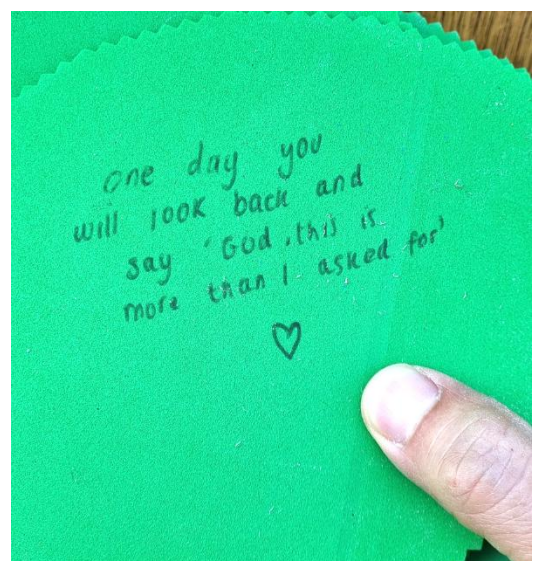 one day you
will look back and
say 'God, this is
more than I asked for'